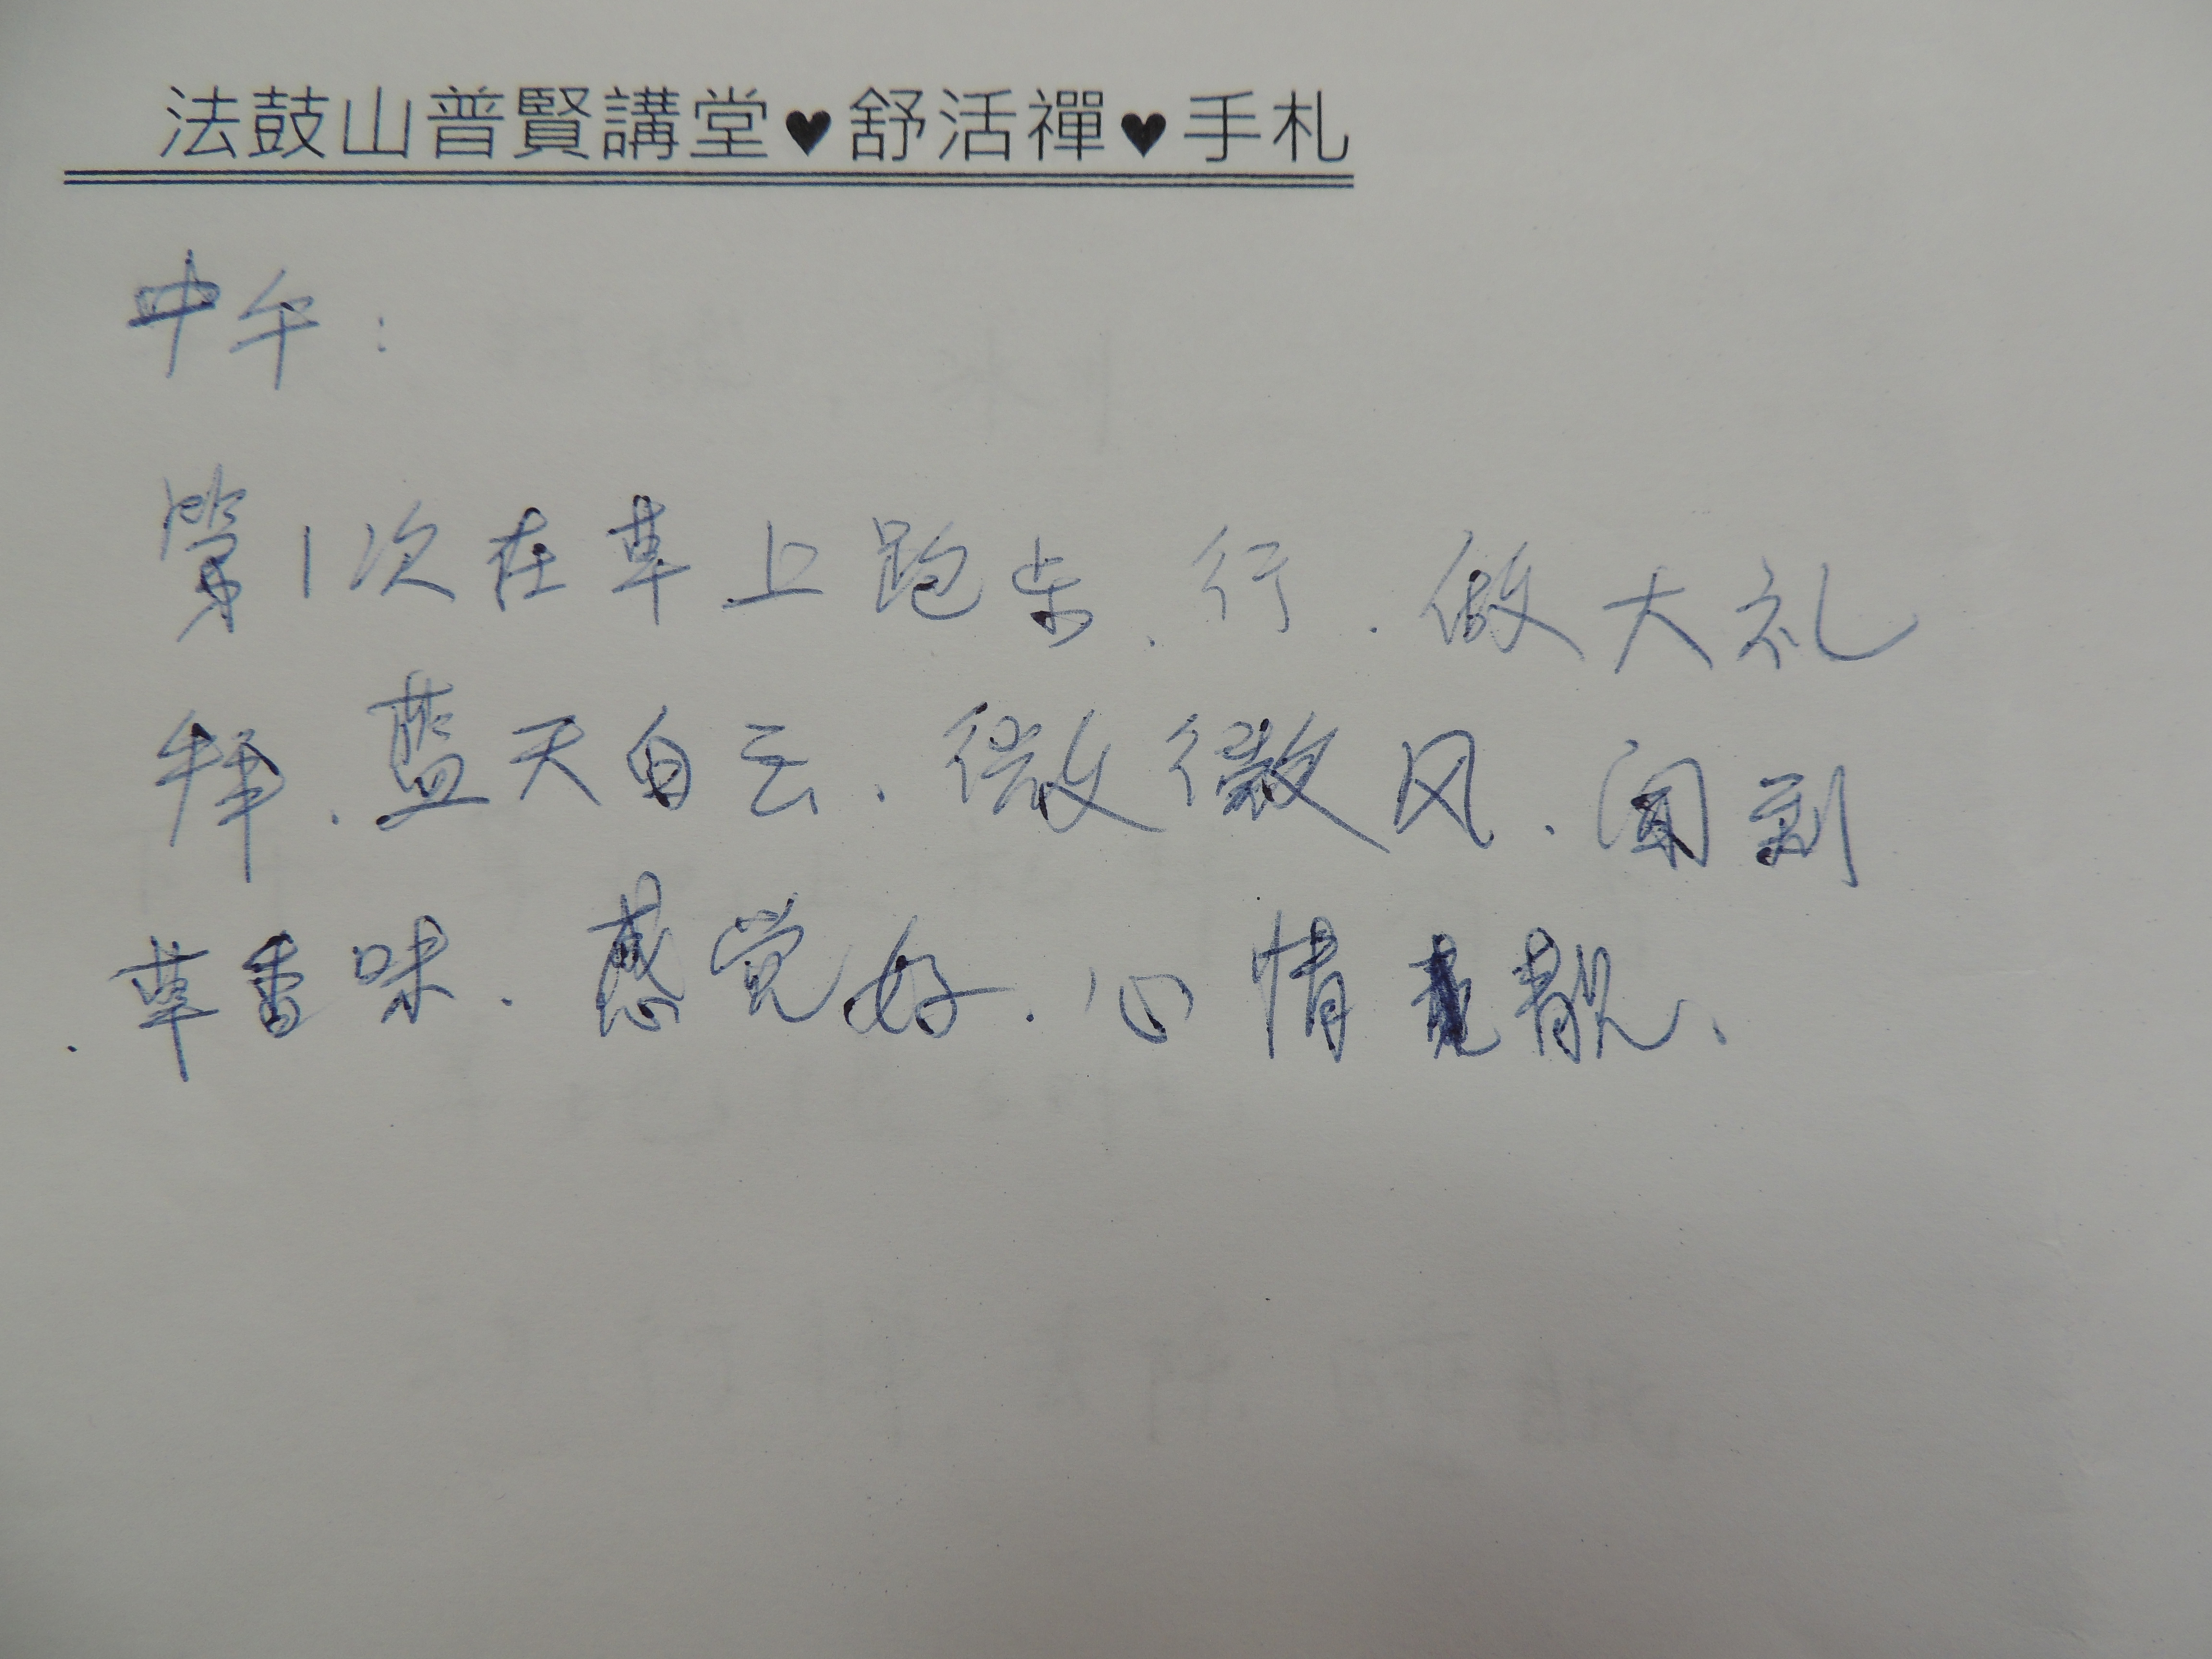 法鼓山普賢講堂♥舒活禪♥手札
中午：
第1次在草上跑步.行.做大礼
拜.蓝天白云.微微风.闻到
草香味.感觉好.心情靓.